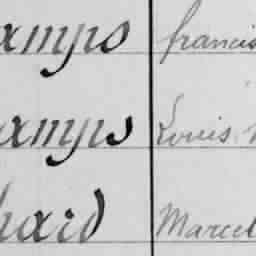 amps francis
amps Louis
hard Marcel